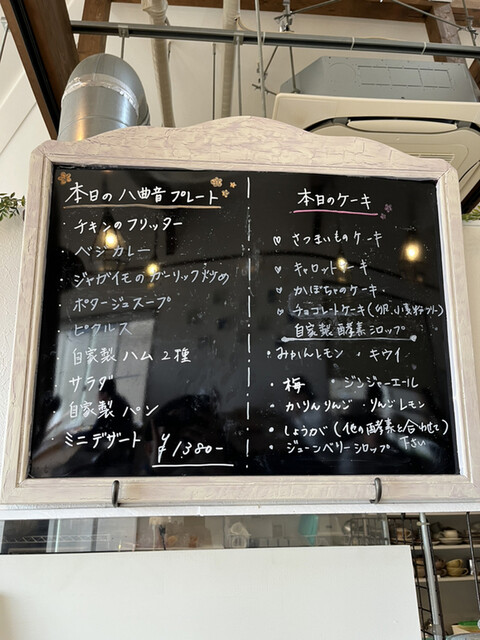 本日の八曲音プレート
チキンのフリッター
・ベジカレー
・ジャガイモのガーリック炒め
ポタージュスープ
・ピクルス
・自家製ハム2種
・サラダ
・自家製パン
・ミニデザート ¥1380-
本日のケーキ
♡ さつまいものケーキ
♡ キャロットケーキ
♡ かぼちゃのケーキ
♡ チョコレートケーキ(卵、小麦粉フリー)
自家製酵素シロップ
・みかんレモン ・キウイ
・梅 ・ジンジャーエール
・かりんりんご ・りんごレモン
・しょうが(他の酵素と合わせて下さい)
・ジューンベリーシロップ